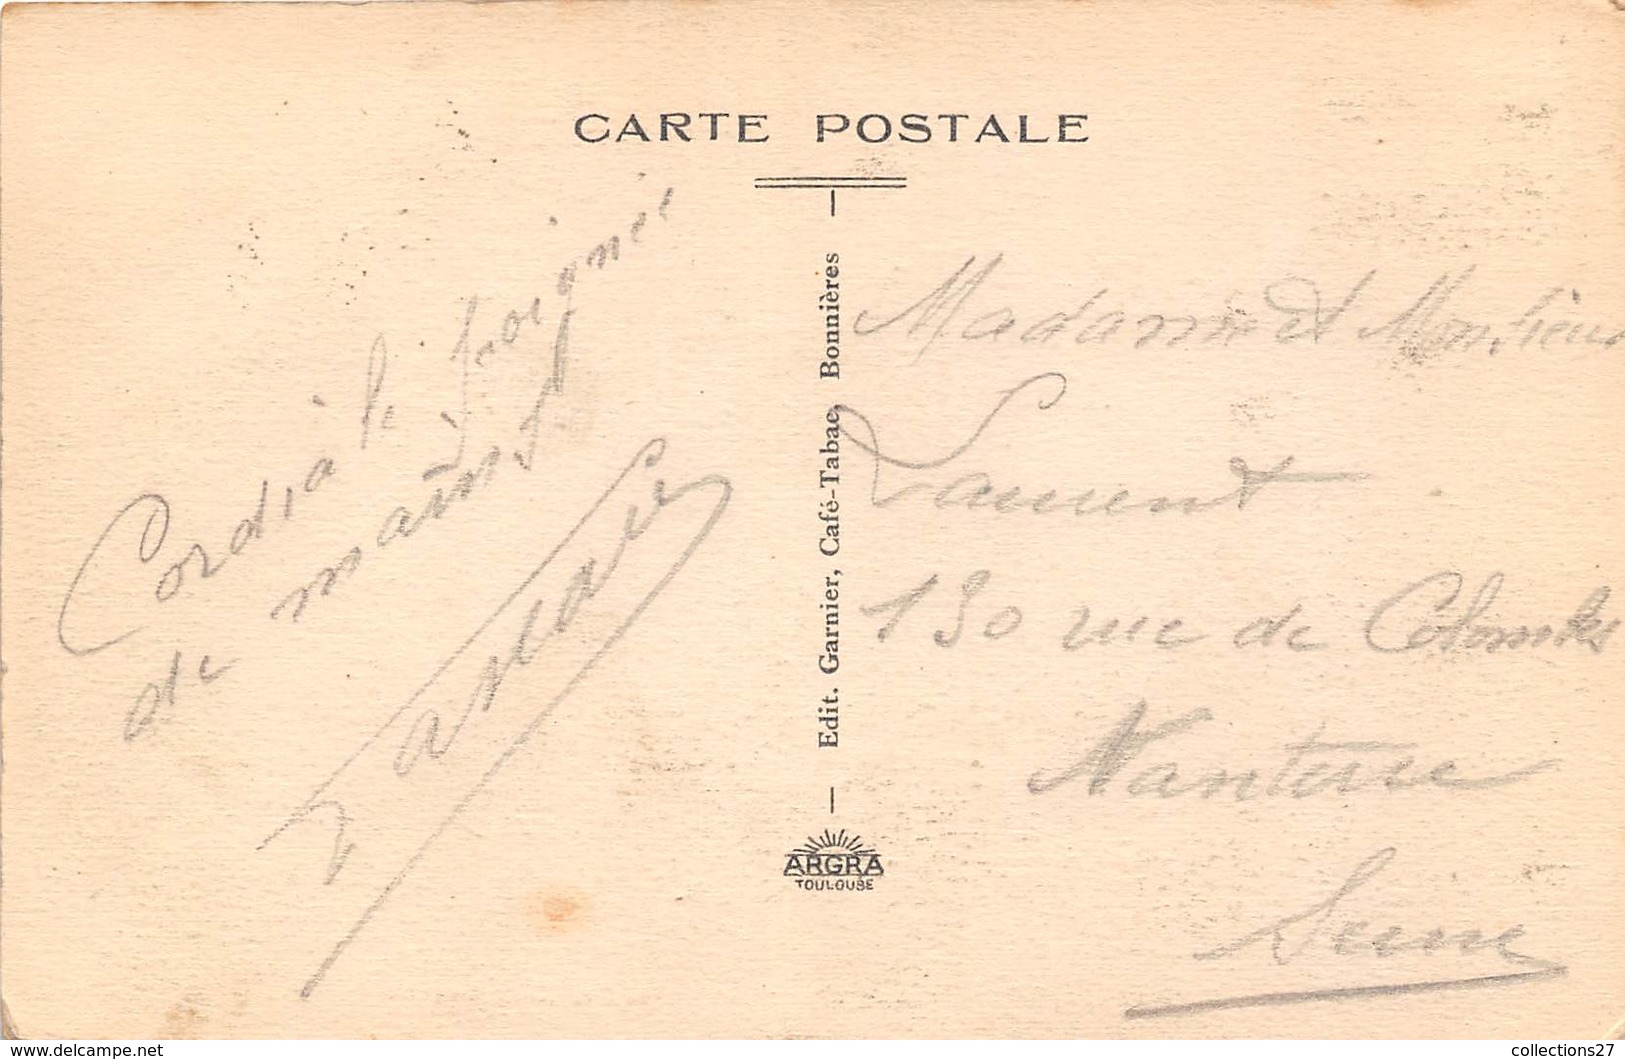 CARTE POSTALE
Cordiale poignée
de mains
Edit. Garnier, Café-Tabac, Bonnières
ARGRA
TOULOUSE
Madame et Monsieur
Laurent
130 rue de Colombes
Nanterre
Seine
www.delcampe.net
collections27